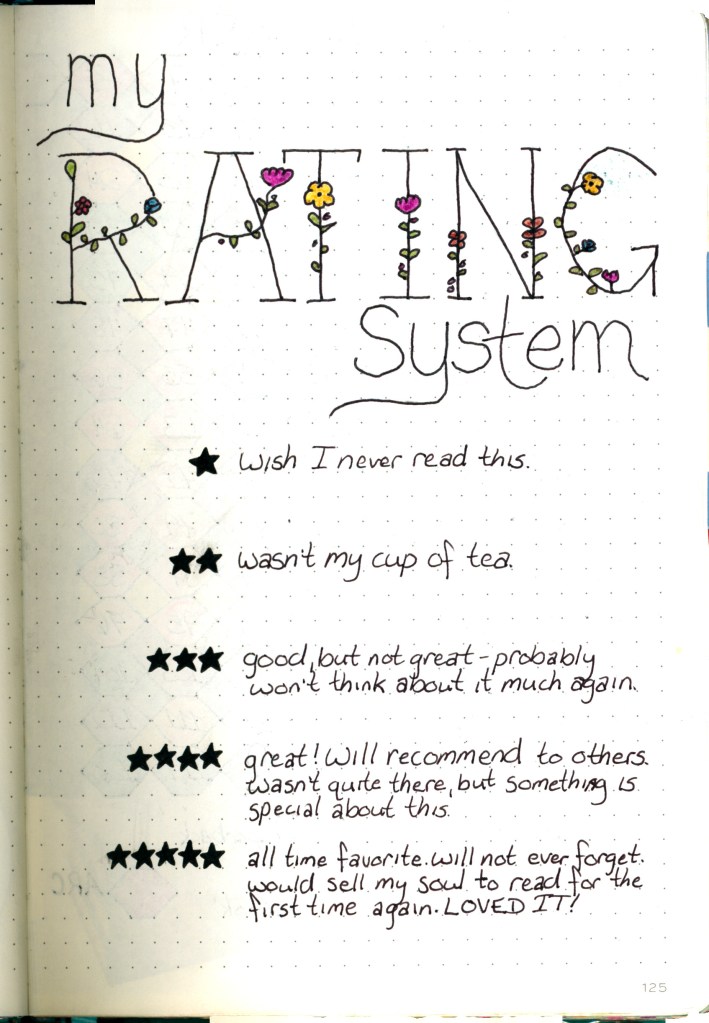 my
RATING
system
★ wish I never read this.
★★ wasn't my cup of tea.
★★★ good, but not great - probably
won't think about it much again.
★★★★ great! Will recommend to others.
wasn't quite there, but something is
special about this.
★★★★★ all time favorite. will not ever forget.
would sell my soul to read for the
first time again. LOVED IT!
ARC
125